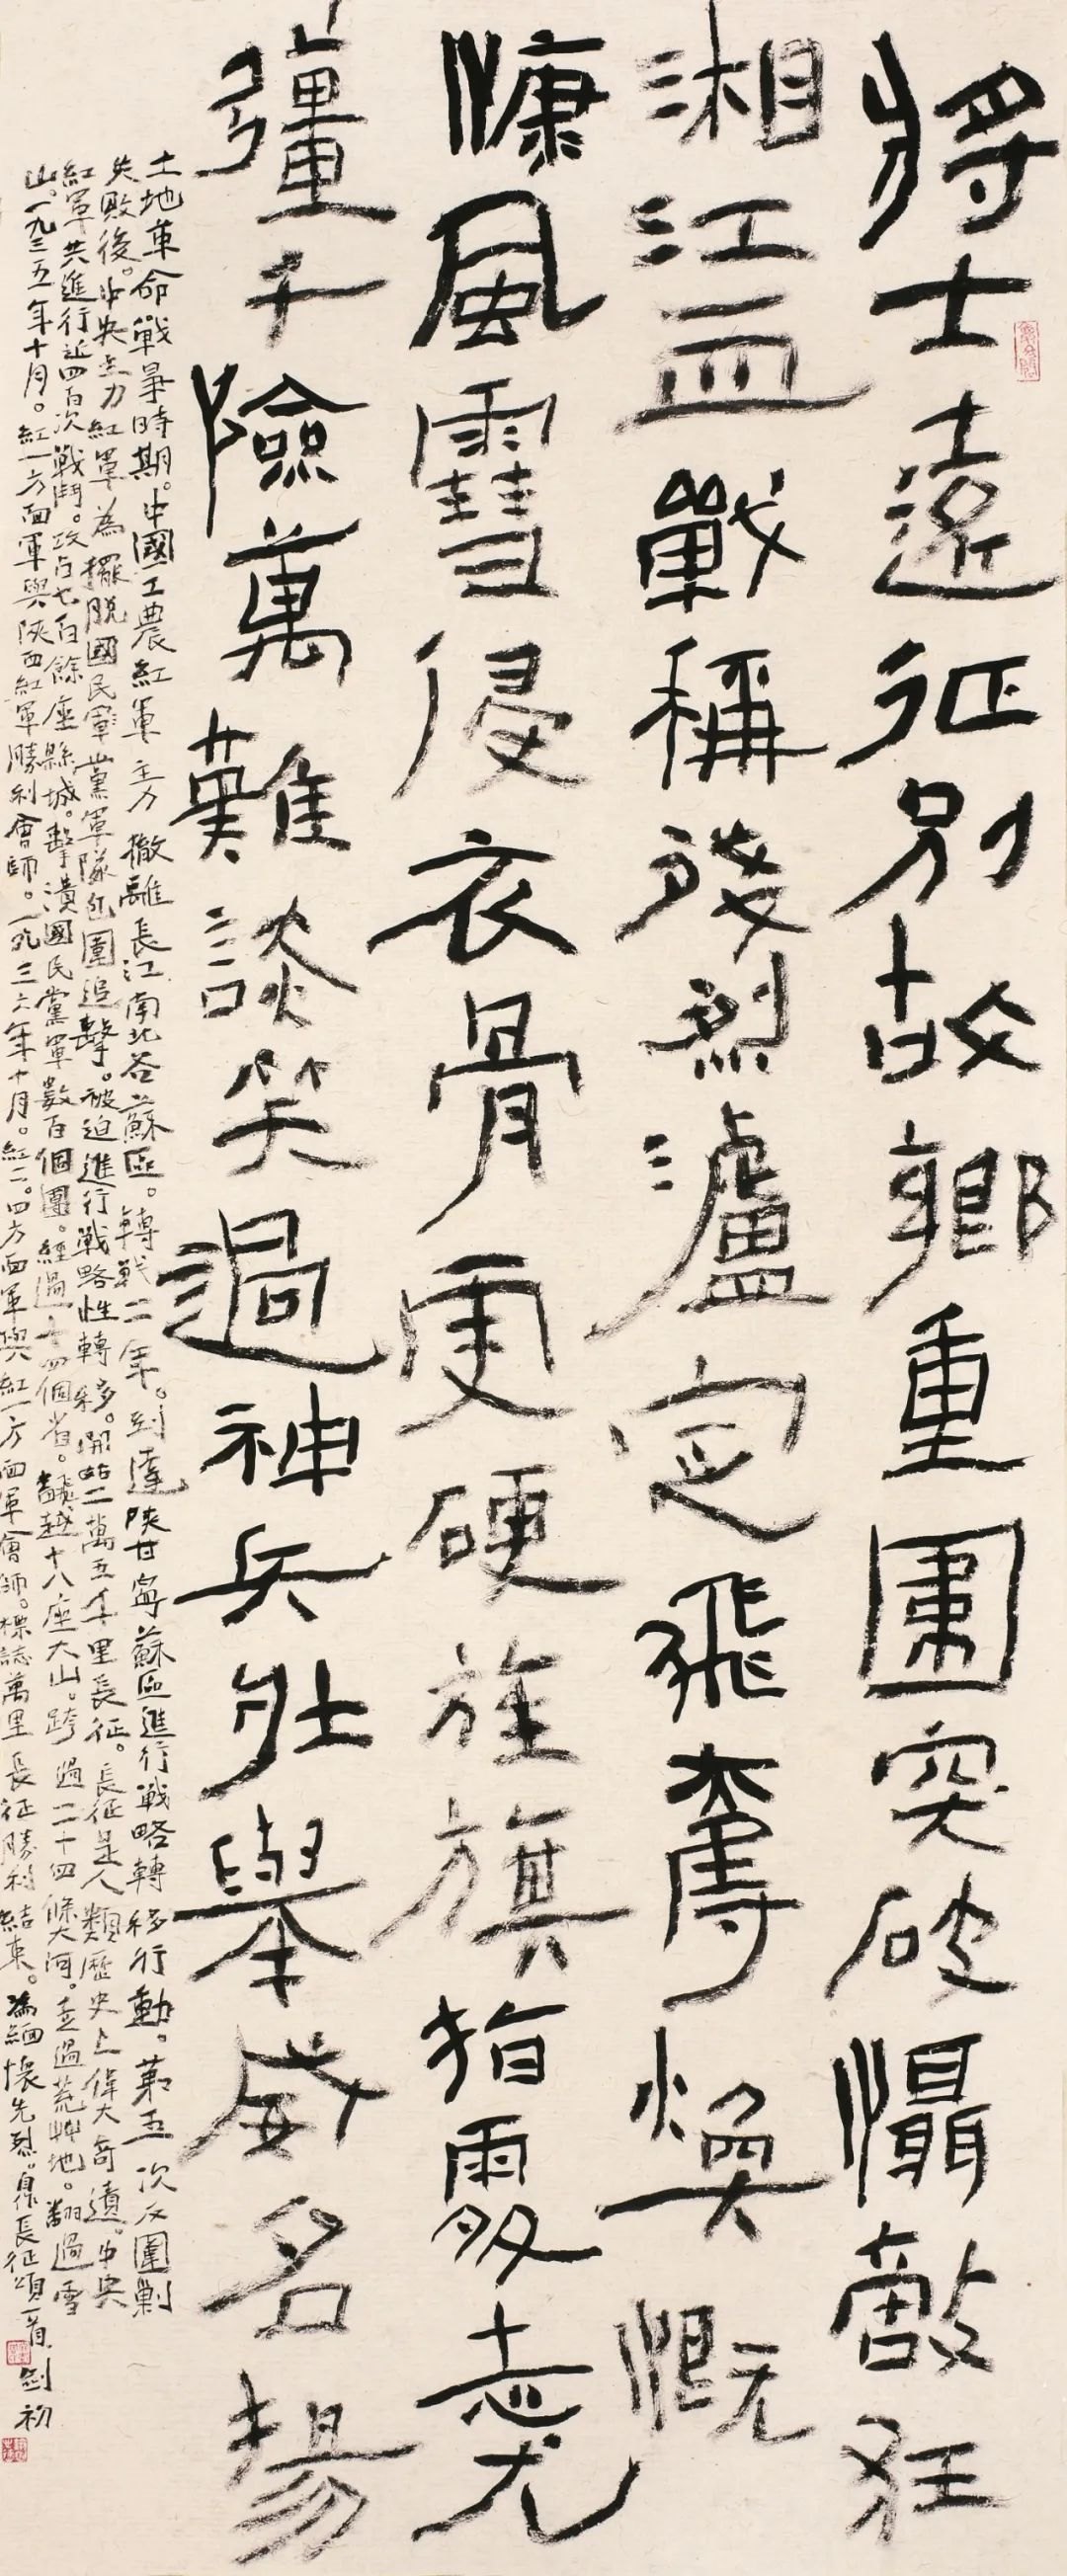 將士遠征別故鄉重圍突破懾敵狂
湘江血戰稱殘烈瀘定飛奪煥慨
慷風雪侵衣骨更硬旌旗指處志尤
彊千險萬難談笑過神兵壯舉威名揚
土地革命戰爭時期。中國工農紅軍主力撤離長江南北各蘇區。轉戰二年。到達陝甘寧蘇區進行戰略轉移行動。第五次反圍剿
失敗後。中央主力紅軍為擺脫國民黨軍隊包圍追擊。被迫進行戰略性轉移。開始二萬五千里長征。長征是人類歷史上偉大奇蹟。中央
紅軍共進行近四百次戰鬥。攻占七百餘座縣城。擊潰國民黨軍數百個團。經過十四個省。翻越十八座大山。跨過二十四條大河。走過荒艸地。翻過雪
山。一九三五年十月。紅一方面軍與陝西紅軍勝利會師。一九三六年十月。紅二。四方面軍與紅一方面軍會師。標誌萬里長征勝利結束。為緬懷先烈。得長征頌一首 劍初